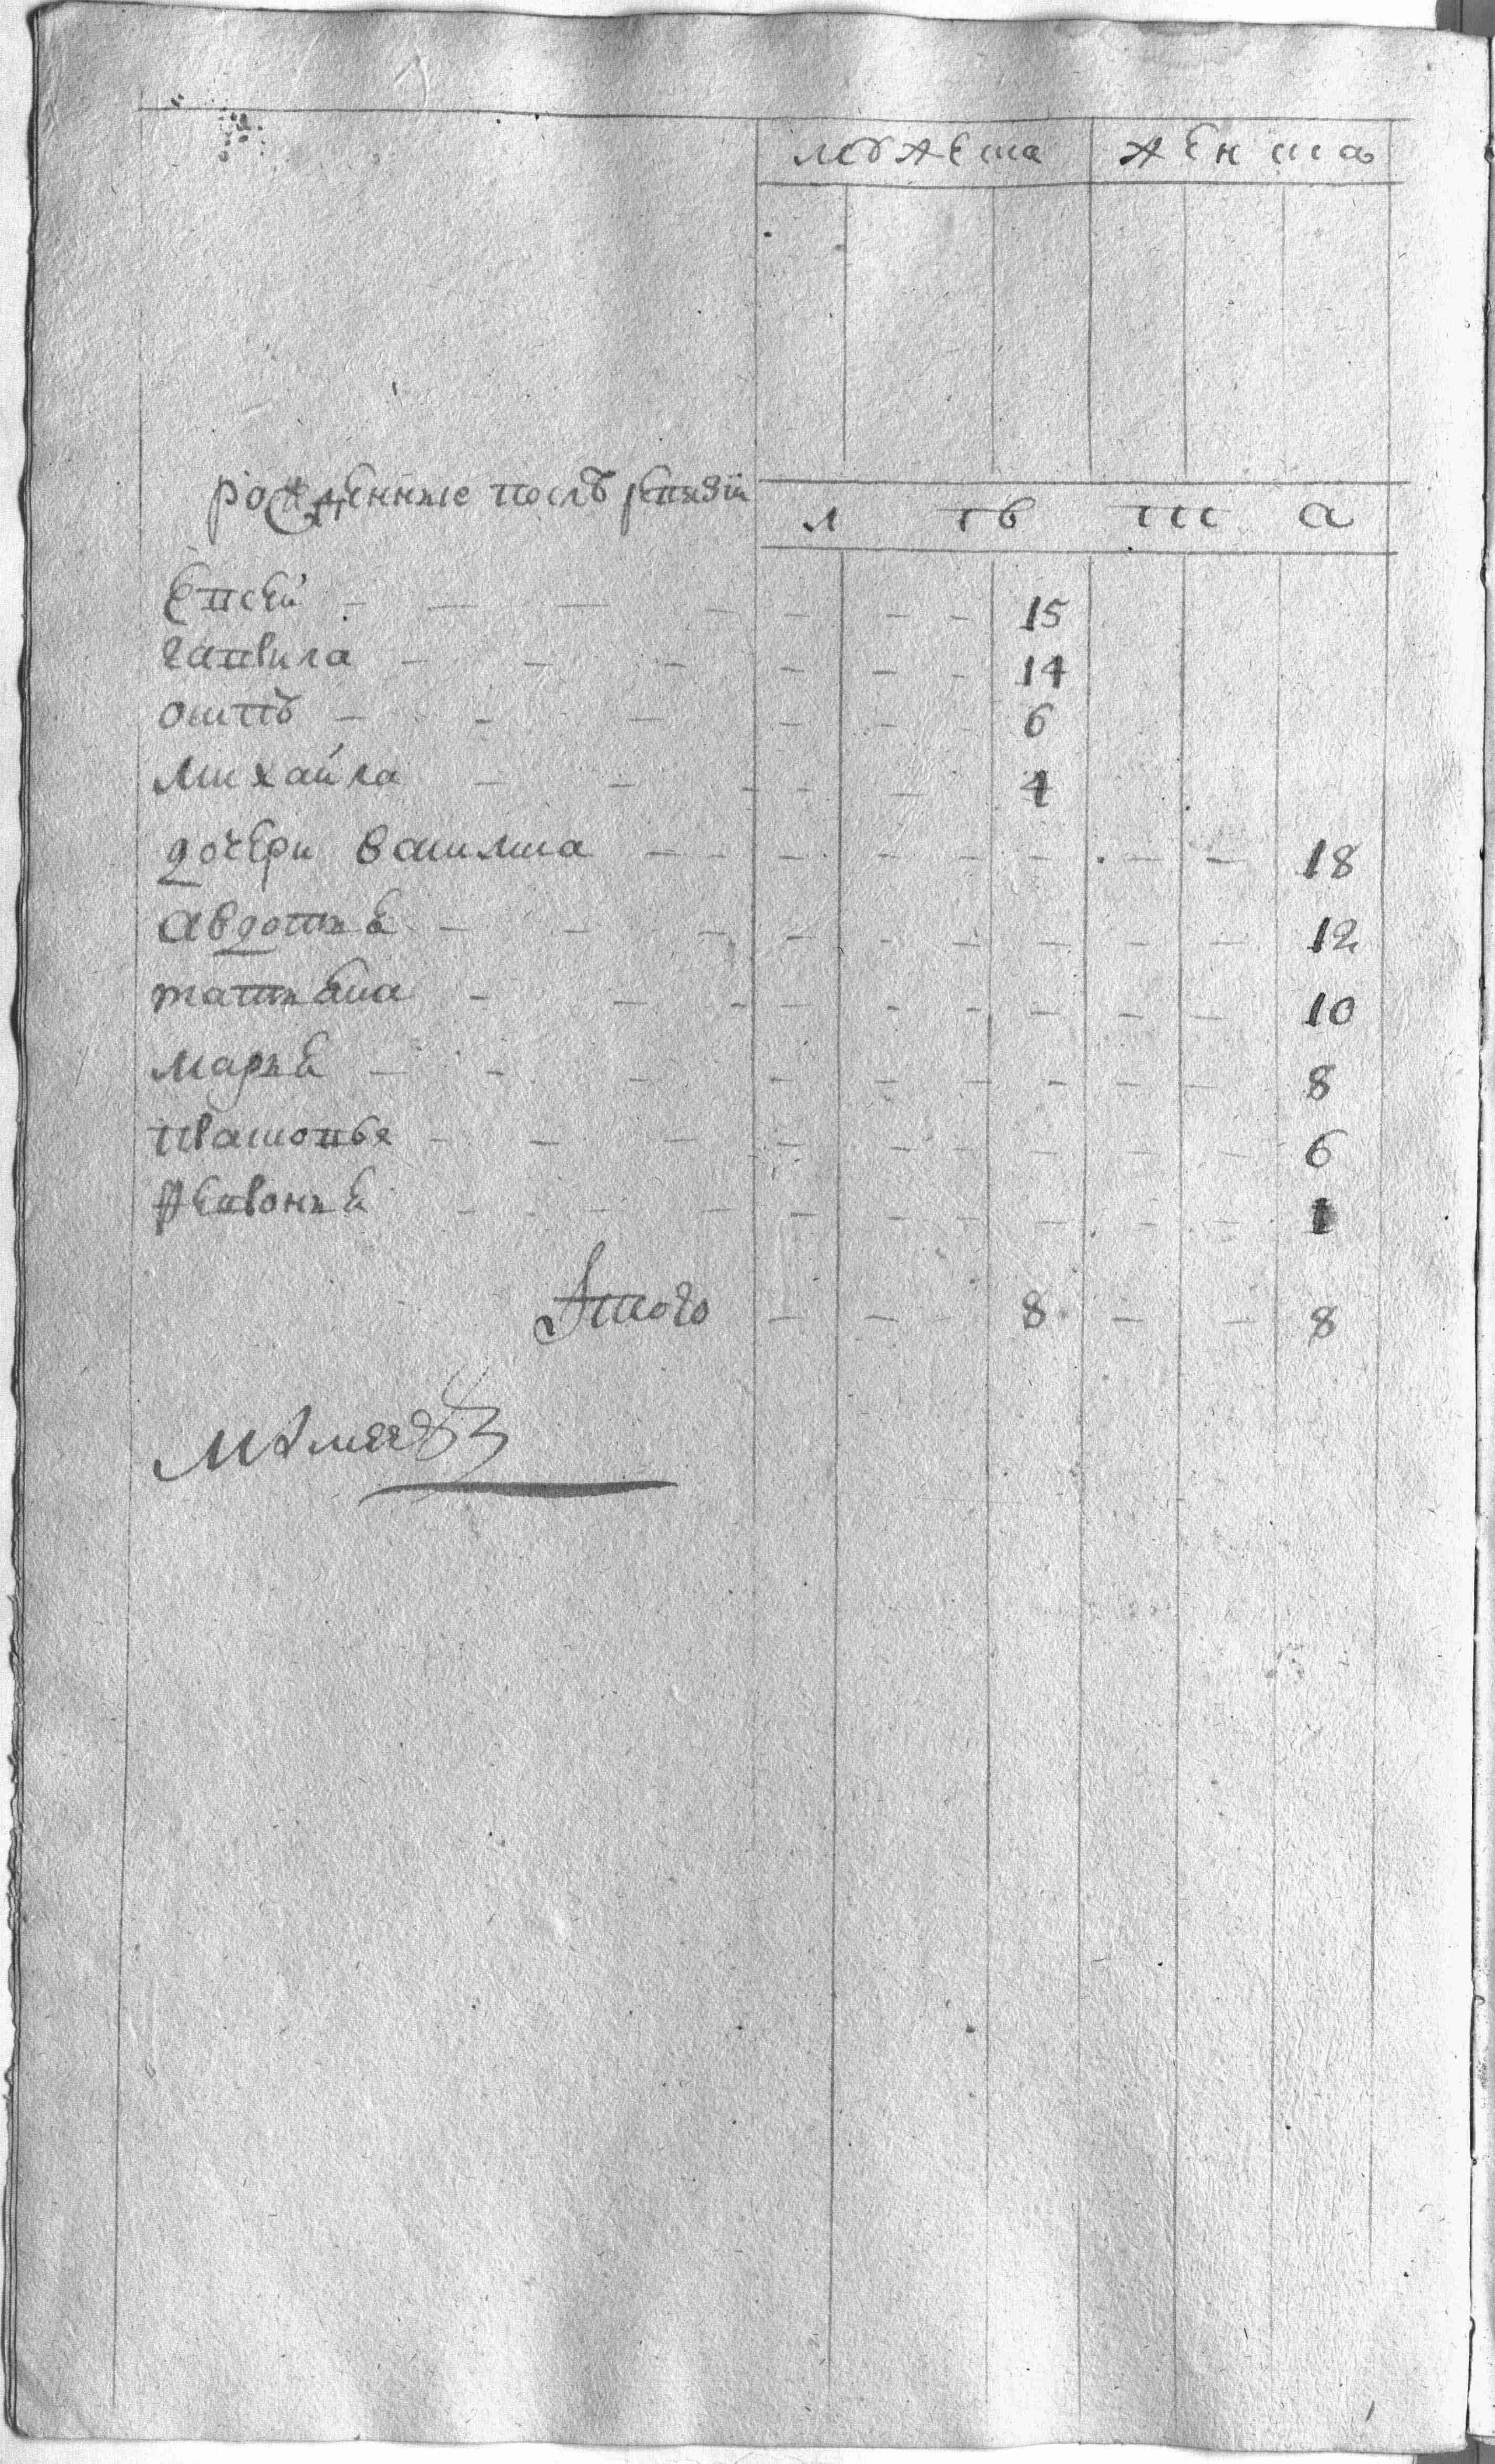 мужеска женска
рожденные послѣ ревизіи
л ѣ т а
Евсей - - - 15
Гаврила - - - 14
Осипъ - - - 6
Михайла - - - 4
дочери Василиса - - - 18
Авдотья - - - 12
татьяна - - - 10
Марья - - - 8
- - - 6
Февронья - - - 1
Итого - - 8 - - 8